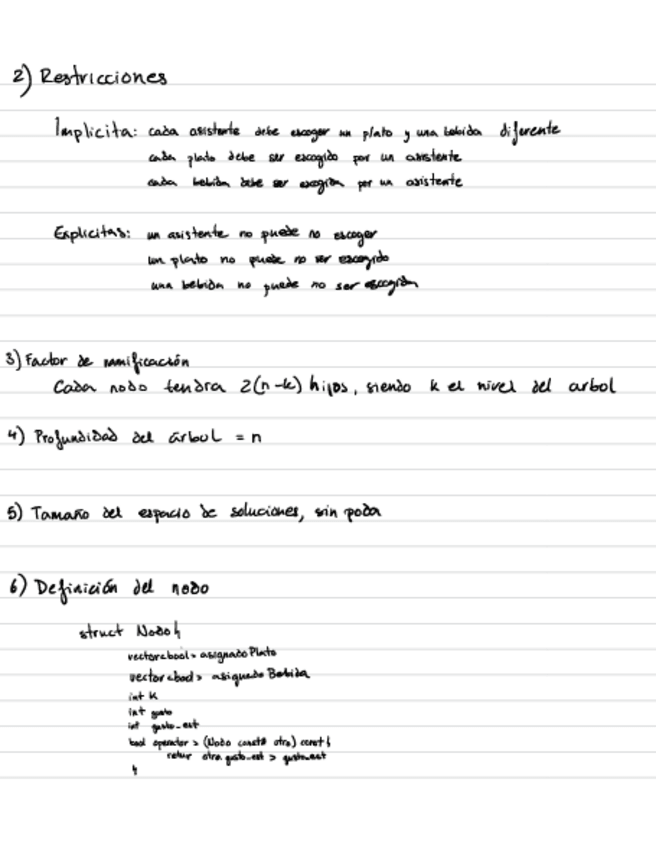 2) Restricciones
Implicita: cada asistente debe escoger un plato y una bebida diferente
cada plato debe ser escogido por un asistente
cada bebida debe ser escogida por un asistente
Explicitas: un asistente no puede no escoger
un plato no puede no ser escogido
una bebida no puede no ser escogida
3) Factor de ramificación
Cada nodo tendra 2(n-k) hijos, siendo k el nivel del arbol
4) Profundidad del árbol = n
5) Tamaño del espacio de soluciones, sin poda
6) Definición del nodo
struct Nodo{
vector<bool> asignadoPlato
vector<bool> asignadoBebida
int k
int gusto
int gusto_est
bool operator > (Nodo const& otro) const {
retur otro.gusto_est > gusto_est
}